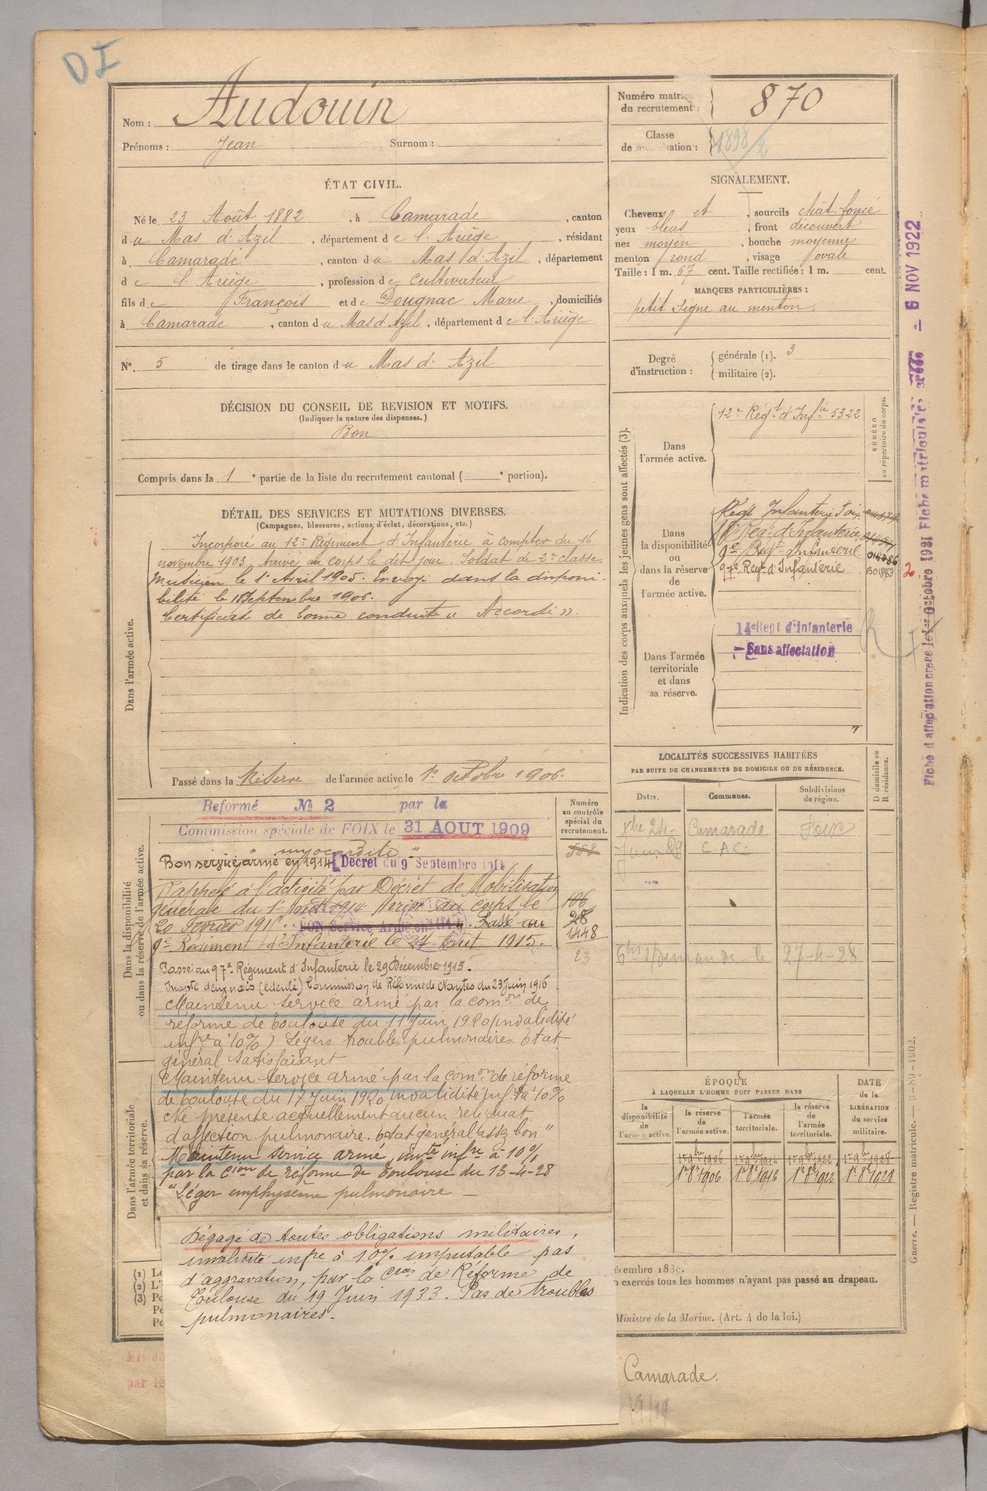 DI
Nom : Audouin
Prénoms : Jean Surnom :
Numéro matric
du recrutement : 870
Classe
de mobilisation : 1898/2
ÉTAT CIVIL.
Né le 23 Août 1882, à Camarade, canton
du Mas d'Azil, département de l'Ariège, résidant
à Camarade, canton du Mas d'Azil, département
de l'Ariège, profession de cultivateur
fils de François et de Dougnac Marie, domiciliés
à Camarade, canton du Mas d'Azil, département de l'Ariège
N°. 5 de tirage dans le canton du Mas d'Azil
SIGNALEMENT.
Cheveux et, sourcils chât. foncé
yeux bleus, front découvert
nez moyen, bouche moyenne
menton rond, visage ovale
Taille : 1 m. 67 cent. Taille rectifiée : 1 m. cent.
MARQUES PARTICULIÈRES :
petit signe au menton.
Degré
d'instruction : générale (1). 3
militaire (2).
DÉCISION DU CONSEIL DE REVISION ET MOTIFS.
(Indiquer la nature des dispenses.)
Bon
Compris dans la 1e partie de la liste du recrutement cantonal ( e portion).
DÉTAIL DES SERVICES ET MUTATIONS DIVERSES.
(Campagnes, blessures, actions d'éclat, décorations, etc.)
Dans l'armée active.
Incorporé au 12e Régiment d'Infanterie à compter du 16
novembre 1903, Arrivé au corps le dit jour Soldat de 2e classe.
Musicien le 1er Avril 1905. Envoyé dans la disponi-
bilité le 18 Septembre 1906.
Certificat de bonne conduite « Accordé ».
Passé dans la Réserve de l'armée active le 1er octobre 1906.
Indication des corps auxquels les jeunes gens sont affectés (3).
NUMÉRO
au répertoire du corps.
Dans
l'armée active.
12e Régt d'Infie 5322
Dans
la disponibilité
ou
dans la réserve
de
l'armée active.
Régt Infanterie Foix
Régt d'Infanterie
9e Régt Infanterie
97e Régt d'Infanterie
Dans l'armée
territoriale
et dans
sa réserve.
14e Regt d'Infanterie
Sans affectation
Fiche d'affectation créée le 1er Octobre 1921 Fiche matriculaire créée le 6 NOV 1922
Dans la disponibilité
ou dans la réserve de l'armée active.
Numéro
au contrôle
spécial du
recrutement.
Reformé N° 2 par la
Commission spéciale de FOIX le 31 AOUT 1909
" myocardite "
Bon service armé en 1914 [Décret du 9 Septembre 1914
Rappelé à l'activité par Décret de Mobilisation
générale du 1er Août 1914 Arrivé au corps le
20 Février 1915. Passé au
9e Régiment d'Infanterie le 27 Août 1915.
106
28
1448
23
Passé au 97e Régiment d'Infanterie le 29 Décembre 1915.
Inapte deux mois (édenté) Commission de Réforme de Nantes du 23 Juin 1916
Maintenu service armé par la comon de
réforme de Toulouse du 11 Juin 1920 (invalidité
infre à 10%) Légers troubles pulmonaires. Etat
général satisfaisant
Dans l'armée territoriale
et dans sa réserve.
Maintenu service armé par la comon de réforme
de Toulouse du 17 Juin 1920 invalidité inf. à 10%
Ne présente actuellement aucun reliquat
d'affection pulmonaire. Etat général assez bon "
Maintenu service armé, invté infre à 10%
par la Cion de réforme de Toulouse du 13-4-28
"Léger emphysème pulmonaire -
Dégagé de toutes obligations militaires,
invalidité infre à 10% imputable pas
d'aggravation, par la Cion de Réforme de
Toulouse du 19 Juin 1933. Pas de troubles
pulmonaires.
LOCALITÉS SUCCESSIVES HABITÉES
PAR SUITE DE CHANGEMENTS DE DOMICILE OU DE RÉSIDENCE.
Dates. Communes. Subdivisions de région. D domicile ou R résidence.
Xbre 24- Camarade Foix
Juin 28 CAC
27-4-28
ÉPOQUE
À LAQUELLE L'HOMME DOIT PASSER DANS
la disponibilité de l'armée active.
la réserve de l'armée active.
l'armée territoriale.
la réserve de l'armée territoriale.
DATE
de la
LIBÉRATION
du service
militaire.
1er 8bre 1906 1er 8bre 1916 1er 8bre 1922 1er 8bre 1928
Guerre. — Registre matricule.
écembre 1889.
n exercés tous les hommes n'ayant pas passé au drapeau.
Ministre de la Marine. (Art. 4 de la loi.)
(1) L
(2) L'
(3) P
Camarade.